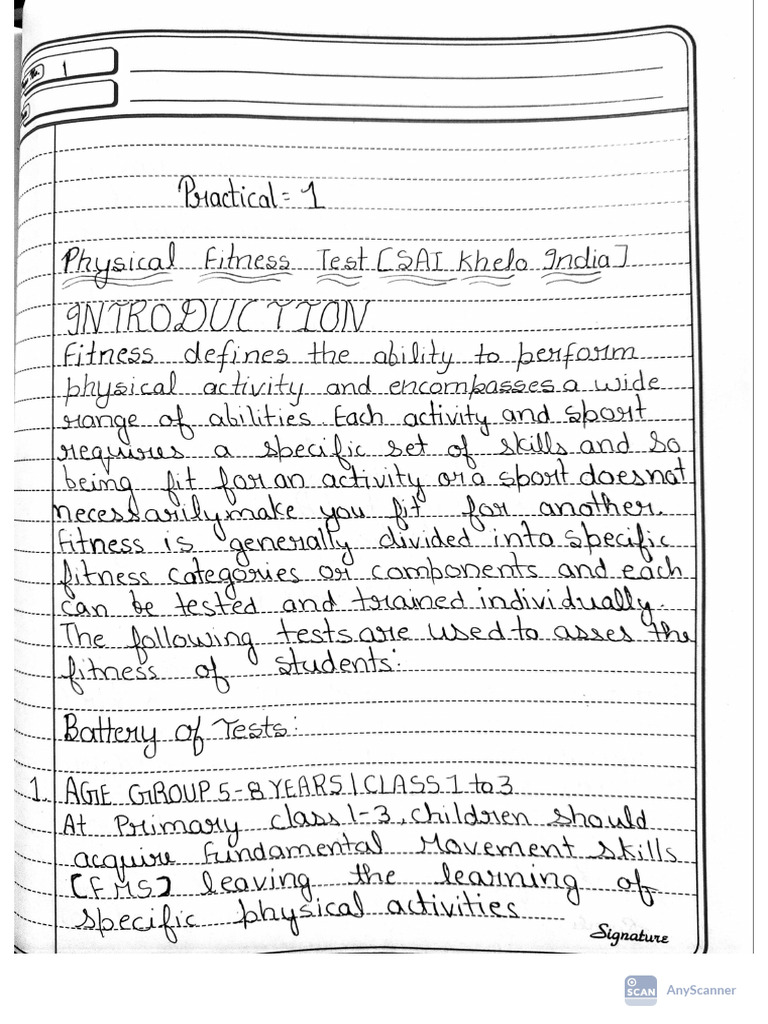 1
Practical = 1
Physical Fitness Test [SAI Khelo India]
INTRODUCTION
Fitness defines the ability to perform
physical activity and encompasses a wide
range of abilities. Each activity and sport
requires a specific set of skills and so
being fit for an activity or a sport does not
necessarily make you fit for another.
Fitness is generally divided into specific
fitness categories or components and each
can be tested and trained individually.
The following tests are used to asses the
fitness of students:
Battery of Tests:
1. AGE GROUP 5-8 YEARS | CLASS 1 to 3
At Primary class 1-3, children should
acquire Fundamental Movement skills
[FMS] leaving the learning of
specific physical activities
Signature
SCAN AnyScanner